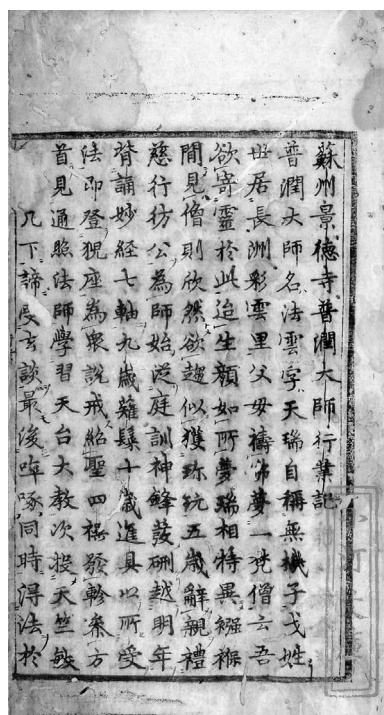 蘇州景德寺普潤大師行業記
普潤大師名法雲字天瑞自稱無機子戈姓
世居長洲彩雲里父母禱佛夢一梵僧云吾
欲寄靈於此迨生顏如所夢瑞相特異襁褓
間見僧則欣然欲趨似獲珎玩五歲辭親禮
慈行彷公為師始從庭訓神鋒發硎越明年
背誦妙經七軸九歲薙髮十歲進具以所受
法即登猊座為衆說戒紹聖四禩發軫叅方
首見通照法師學習天台大教次投天竺敏
几下諦受玄談最後啐啄同時得法於